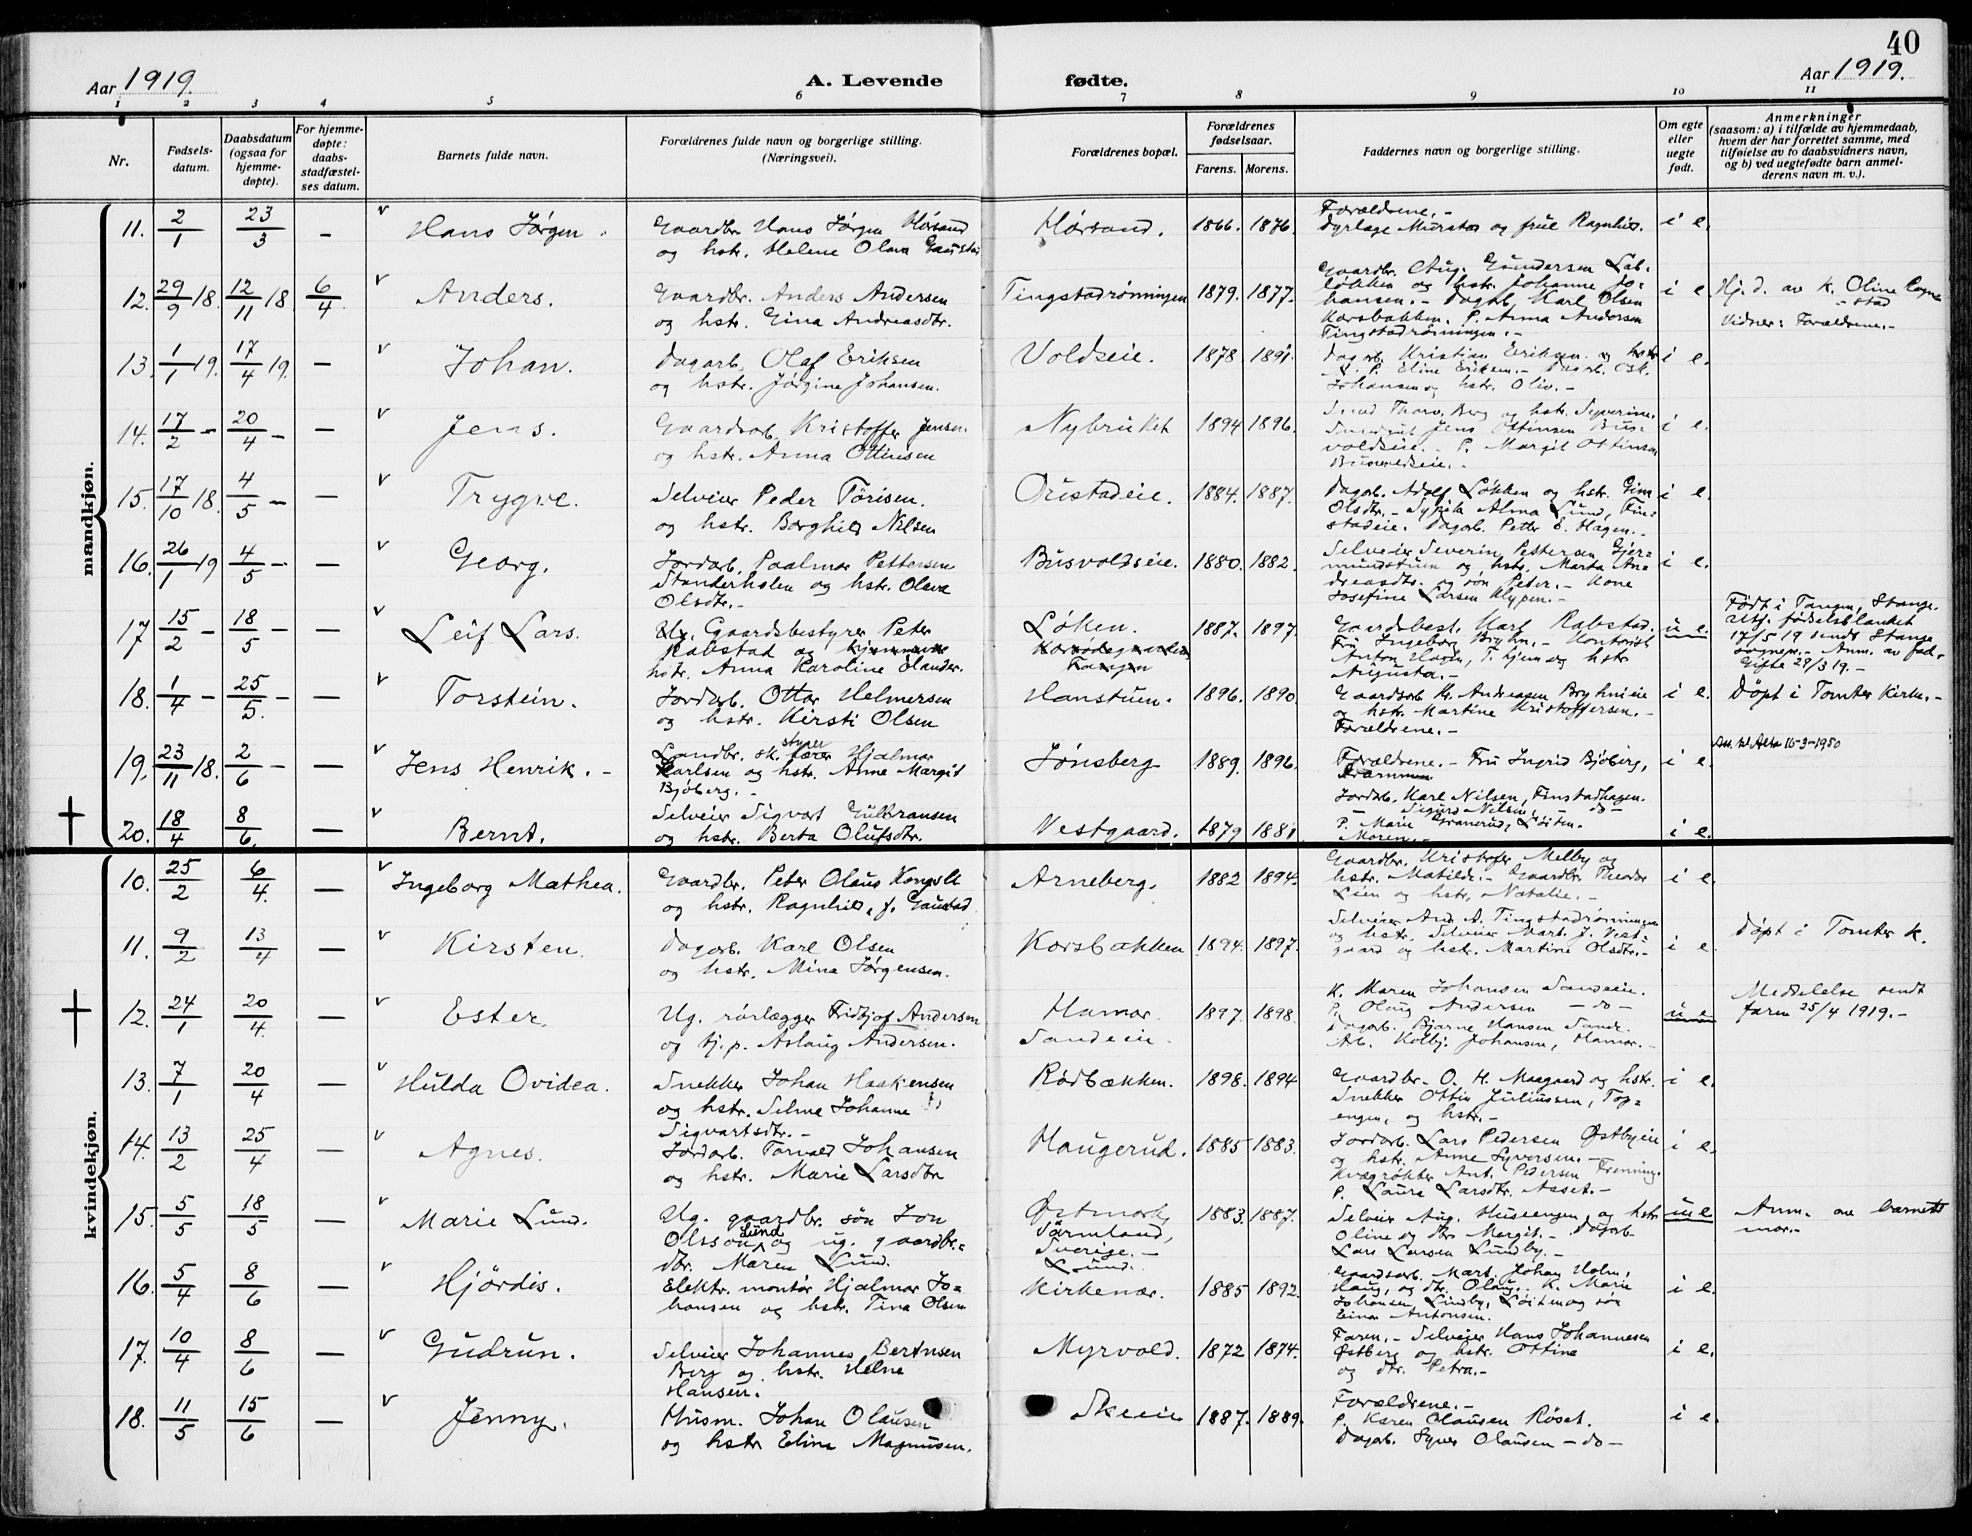 40
Aar 1919. A. Levende fødte. Aar 1919.
1 2 3 4 5 6 7 8 9 10 11
Nr. Fødsels-datum. Daabsdatum (ogsaa for hjemme-døpte). For hjemme-døpte: daabs-stadfæstel-ses datum. Barnets fulde navn. Forældrenes fulde navn og borgerlige stilling. (Næringsvei). Forældrenes bopæl. Forældrenes fødselsaar. Farens. Morens. Faddernes navn og borgerlige stilling. Om egte eller uegte født. Anmerkninger (saasom: a) i tilfælde av hjemmedaab, hvem der har forrettet samme, med tilføielse av to daabsvidners navn, og b) ved uegtefødte barn anmel-derens navn m. v.).
mandkjøn.
11. 2/1 23/3 – v Hans Jørgen. Gaardbr. Hans Jørgen Hørsand og hstr. Helene Olava Hørsand. 1866. 1876. Forældrene.– Dyrlæge og frue Ragnhild. i e.
12. 29/9 18. 12/11 18 6/4 v Anders. Gaardbr. Anders Andersen og hstr. Gina Andreasdtr. Tingstadrønningen 1879. 1877. Gaardbr. Aug. Gundersen Løkken og hstr. Johanne Johansen.– Dagarb. Karl Olsen Korsbakken. P. Anna Andersen Tingstadrønningen.– i e. Hj. d. av k. Oline Vidner: Forældrene.–
13. 1/1 19. 17/4 19. – v Johan. Dagarb. Olaf Eriksen og hstr. Jørgine Johansen. Voldseie. 1878. 1891. Dagarb. Kristian Eriksen og hstr. P. Eline Eriksen.– Dagarb. Osk. Johansen og hstr. Oliv.– i e.
14. 17/2 – 20/4 – – v Jens. Gaardsarb. Kristoffer Jensen og hstr. Anna Ottinsen Nybruket 1894 1896. Smed Thorv. Berg og hstr. Syverine. Jens Ottinsen Busvoldseie. P. Margit Ottinsen Busvoldseie.– i e.
15. 17/10 18. 4/5 – – v Trygve. Selveier Peder Tørisen. og hstr. Borghild Nilsen Oustadeie. 1884. 1887. Dagarb. Adolf Løkken og hstr. Gina Olsdtr.– Sypike Alma Lund, Finstadeie. Dagarb. Petter E. Hagen.– i e.
16. 26/1 19 4/5 – – v Georg. Jordarb. Paalmar Pettersen og hstr. Olava Olsdtr.– Busvoldseie. 1880. 1882. Selveier Severin Pettersen og hstr. Marta Andreasdtr. og søn Peter.– Kone Josefine Larsen Klypen.– i e.
17 15/2 – 18/5 – – v Leif Lars. Ug. Gaardsbestyrer Peter Rabstad og hstr. Anna Karoline Olander. Løken. 1887. 1897. Gaardsbest. Karl Rabstad. Fru Ingeborg Bryhn.– Kontorist Anton og hstr Augusta.– u e. Født i Tangen, Stange. fødselsblanket 17/5 19 sendt Stange sogneprest.– Anm. av Gifte 29/3 19.–
18. 1/4 – 25/5. – – v Torstein. Jordarb. Ottar Helmersen og hstr. Kirsti Olsen Hanstuen. 1896. 1890. Gaardsarb Kr. Andreasen Bryhnieie og hstr. Martine Kristoffersen.– Forældrene.– i e. Døpt i Tomter Kirke.–
19. 23/11 18. 2/6 – – v Jens Henrik.– Landbr. sk. styrer Hjalmar Karlsen og hstr. Anne Margit Bjøberg.– Jønsberg 1889. 1896. Forældrene.– Fru Ingrid Bjøberg, i e. Alta 16-3-1950
† 20. 18/4 8/6. – v Bernt. Selveier Sigvart Gulbransen og hstr. Berta Olufsdtr. Vestgaard. 1879 1881 Jordarb. Karl Nilsen, Finstadhagen. – Sigurd Nilsen –do– P. Marie Granerud, Løiten. Moren.– i e.
kvindekjøn.
10. 25/2 6/4. – v Ingeborg Mathea. Gaardbr. Peter Olaus Kongsli og hstr. Ragnhild, f. Gaustad Arneberg. 1882 1894. Gaardbr. Kristofer Melby og hstr. Matilde.– Gaardbr. Theodor Lien og hstr. Natalie.– i e.
11. 9/2 13/4 – v Kirsten. Dagarb. Karl Olsen og hstr. Mina Jørgensen. Korsbakken 1894. 1897. Selveier And. A. Tingstadrønningen og hstr. Selveier Mart. J. Vestgaard og hstr. Martine Olsdtr.– i e. Døpt i Tomter k.
† 12. 24/1 20/4 – v Ester. Ug. rørlægger Fridtjof Andersen og tj. p. Aslaug Andersen. Hamar. Sandeie. 1897. 1898. K. Maren Johansen Sandeie. P. Olaug Andersen –do– Dagarb. Bjarne Hansen Sande. Arb. Kolbj. Johansen, Hamar.– u e. Meddelelse sendt faren 25/4 1919.–
13. 7/1 20/4 – v Hulda Ovidea. Snekker Johan Haakensen og hstr. Selma Johanne Sigvartsdtr.– Rødbækken. 1898. 1894 Gaardbr. O. H. Maagaard og hstr. Snekker Ottin Juliussen, Topengen, og hstr.– i e.
14. 13/2 25/4 – v Agnes. Jordarb. Torvald Johansen og hstr. Marie Larsdtr Haugerud. 1885 1883. Jordarb. Lars Pedersen Østbyeie og hstr. Anne Syversen.– Kvægrøkter Ant. Pedersen Frenning. P. Laura Larsdtr. Aasset.– i e.
15. 5/5 18/5 – v Marie Lund. Ug. gaardbr. søn Jon Olsson Lund og ug. gaardbr. dtr. Maren Lund. Østmark, Värmland, Sverige.– Lund. 1883. 1887. Selveier Aug. Huseengen og hstr Oline og dtr Margit.– Dagarb. Lars Larsen Lundby.– u e Anm. av barnets mor.–
16. 5/4 8/6 – v Hjördis. Elektr. montør Hjalmar Johansen og hstr. Tina Olsen Kirkenær. 1885 1892. Gaardsarb. Mart. Johan Holm, Haug, og dtr. Olaug. K. Marie Johansen Lundby, Løiten og søn Einar Antonsen. i e.
17. 10/4 8/6 – v Gudrun. Selveier Johannes Berntsen Berg og hstr. Helene Hansen. Myrvold. 1872 1874. Faren.– Selveier Hans Johannesen Østberg og hstr. Ottine og dtr. Petra.– i e.
18. 11/5 15/6 – v Jenny. Husm. Johan Olausen og hstr Elina Magnusen. Skeeie 1887. 1889. Forældrene.– P. Karen Olausen Røset. Dagarb. Syver Olausen –do– i e.